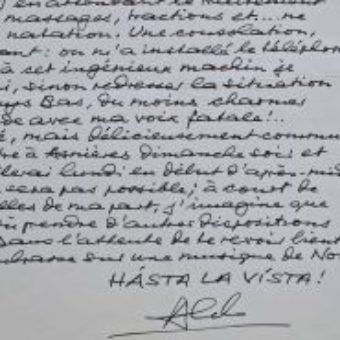 en attendant le traitement
massages, tractions et... ne
natation. Une consolation,
ant : on m'a installé le téléphon
à cet ingénieux machin je
i, sinon redresser la situation
ys Bas, du moins charmer
de avec ma voix fatale!..
é, mais délicieusement commu
à Asnières dimanche soir et
lerai lundi en début d'après-mid
sera pas possible; à court de
lles de ma part, j'imagine que
prendre d'autres dispositions
Dans l'attente de te revoir bient
mbrasse sur une musique de No
HÁSTA LA VÍSTA!